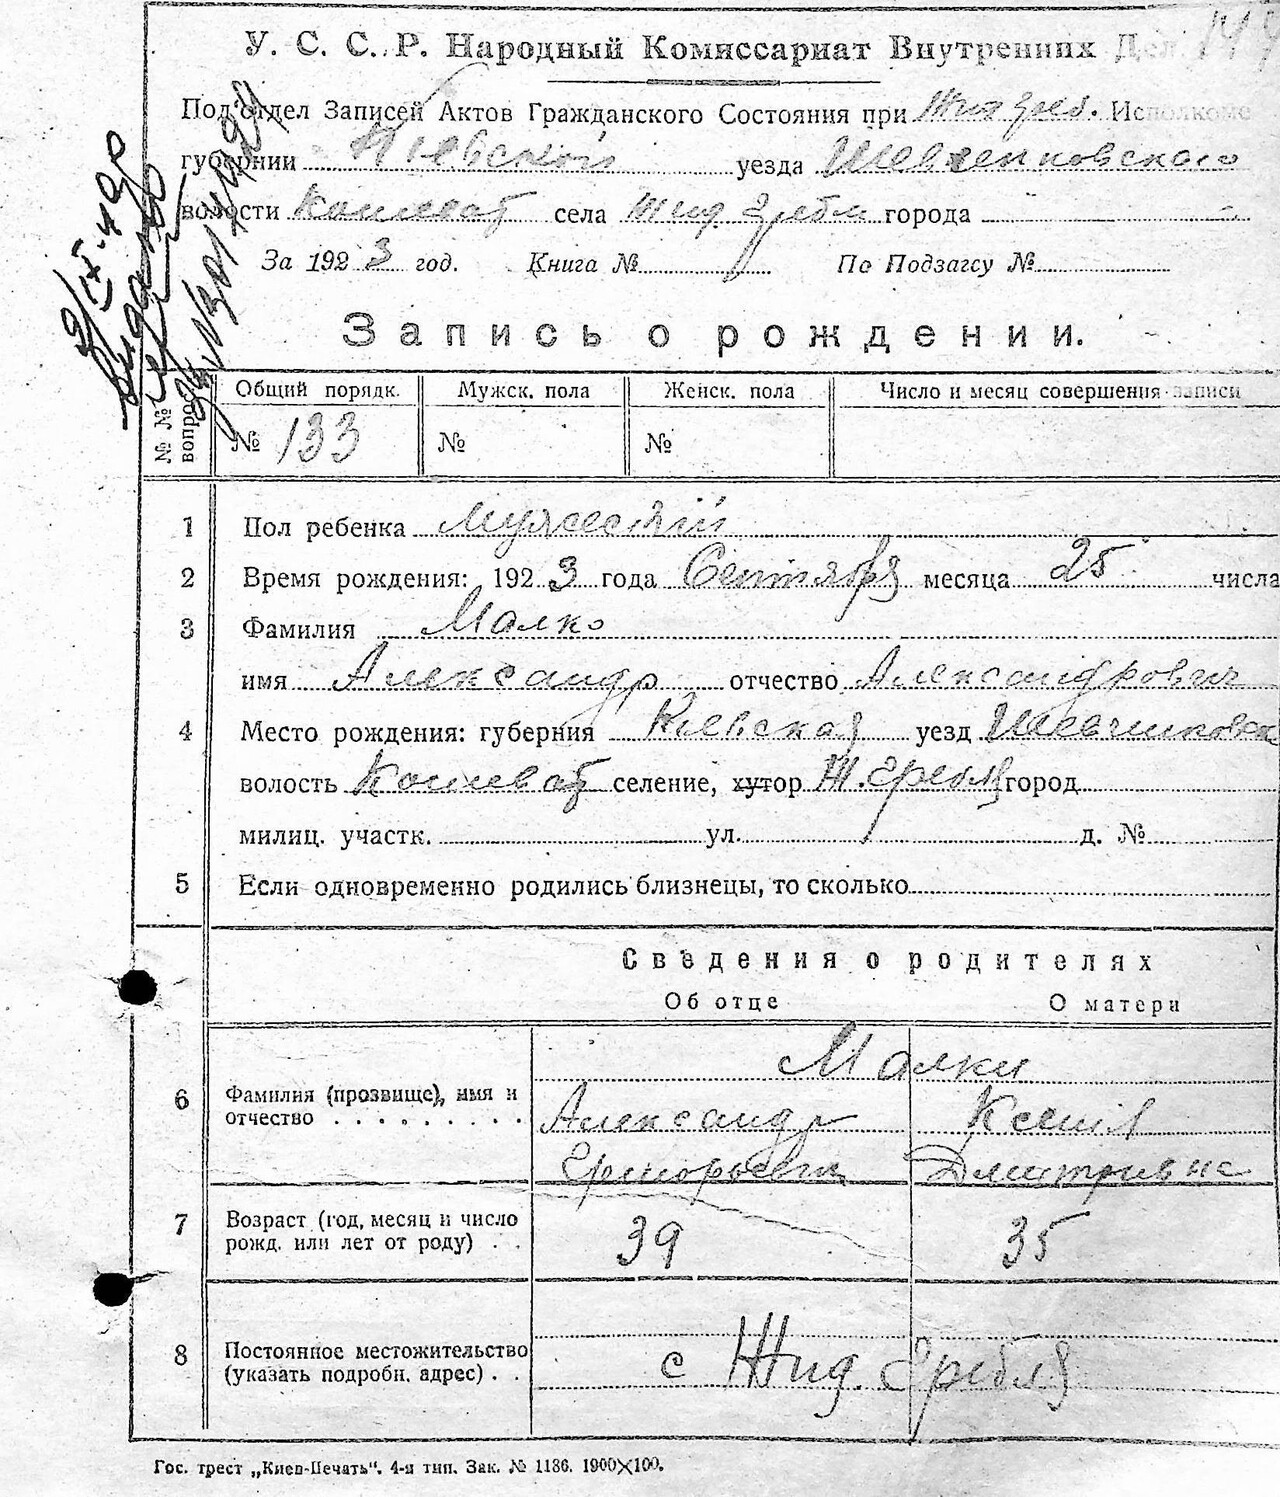 У. С. С. Р. Народный Комиссариат Внутренних Дел 149
Подотдел Записей Актов Гражданского Состояния при Жид греб. Исполкоме
губернии Киевской уезда Шевченковского
волости Кошеват села Жид Гребли города
За 1923 год. Книга № По Подзагсу №
Запись о рождении.
№ № вопрос
Общий порядк. Мужск. пола Женск. пола Число и месяц совершения записи
№ 133 № №
1 Пол ребенка мужеский
2 Время рождения: 1923 года Сентября месяца 25 числа
3 Фамилия Малко
имя Александр отчество Александрович
4 Место рождения: губерния Киевская уезд Шевчинковск
волость Кошеват селение, хутор Ж. Гребля город
милиц. участк. ул. д. №
5 Если одновременно родились близнецы, то сколько
Сведения о родителях
Об отце О матери
Малки
6 Фамилия (прозвище), имя и Александр Ксения
отчество . . . . . . . . . Григорьевич Дмитривна
7 Возраст (год, месяц и число
рожд. или лет от роду) . . 39 35
8 Постоянное местожительство
(указать подробн. адрес) . . с Жид. Гребля
Гос. трест „Киев-Печать“. 4-я тип. Зак. № 1136. 1900×100.